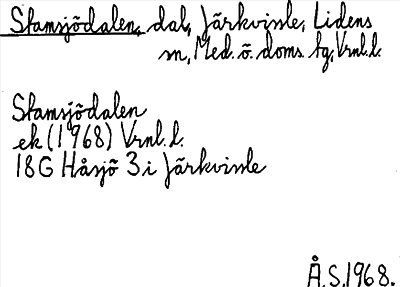 Stamsjödalen, dal, Järkvissle, Lidens
sn, Med. ö. doms. tg, Vrnl.l.
Stamsjödalen
ek (1968) Vrnl.l.
18G Håsjö 3 i Järkvissle
Å.S.1968.